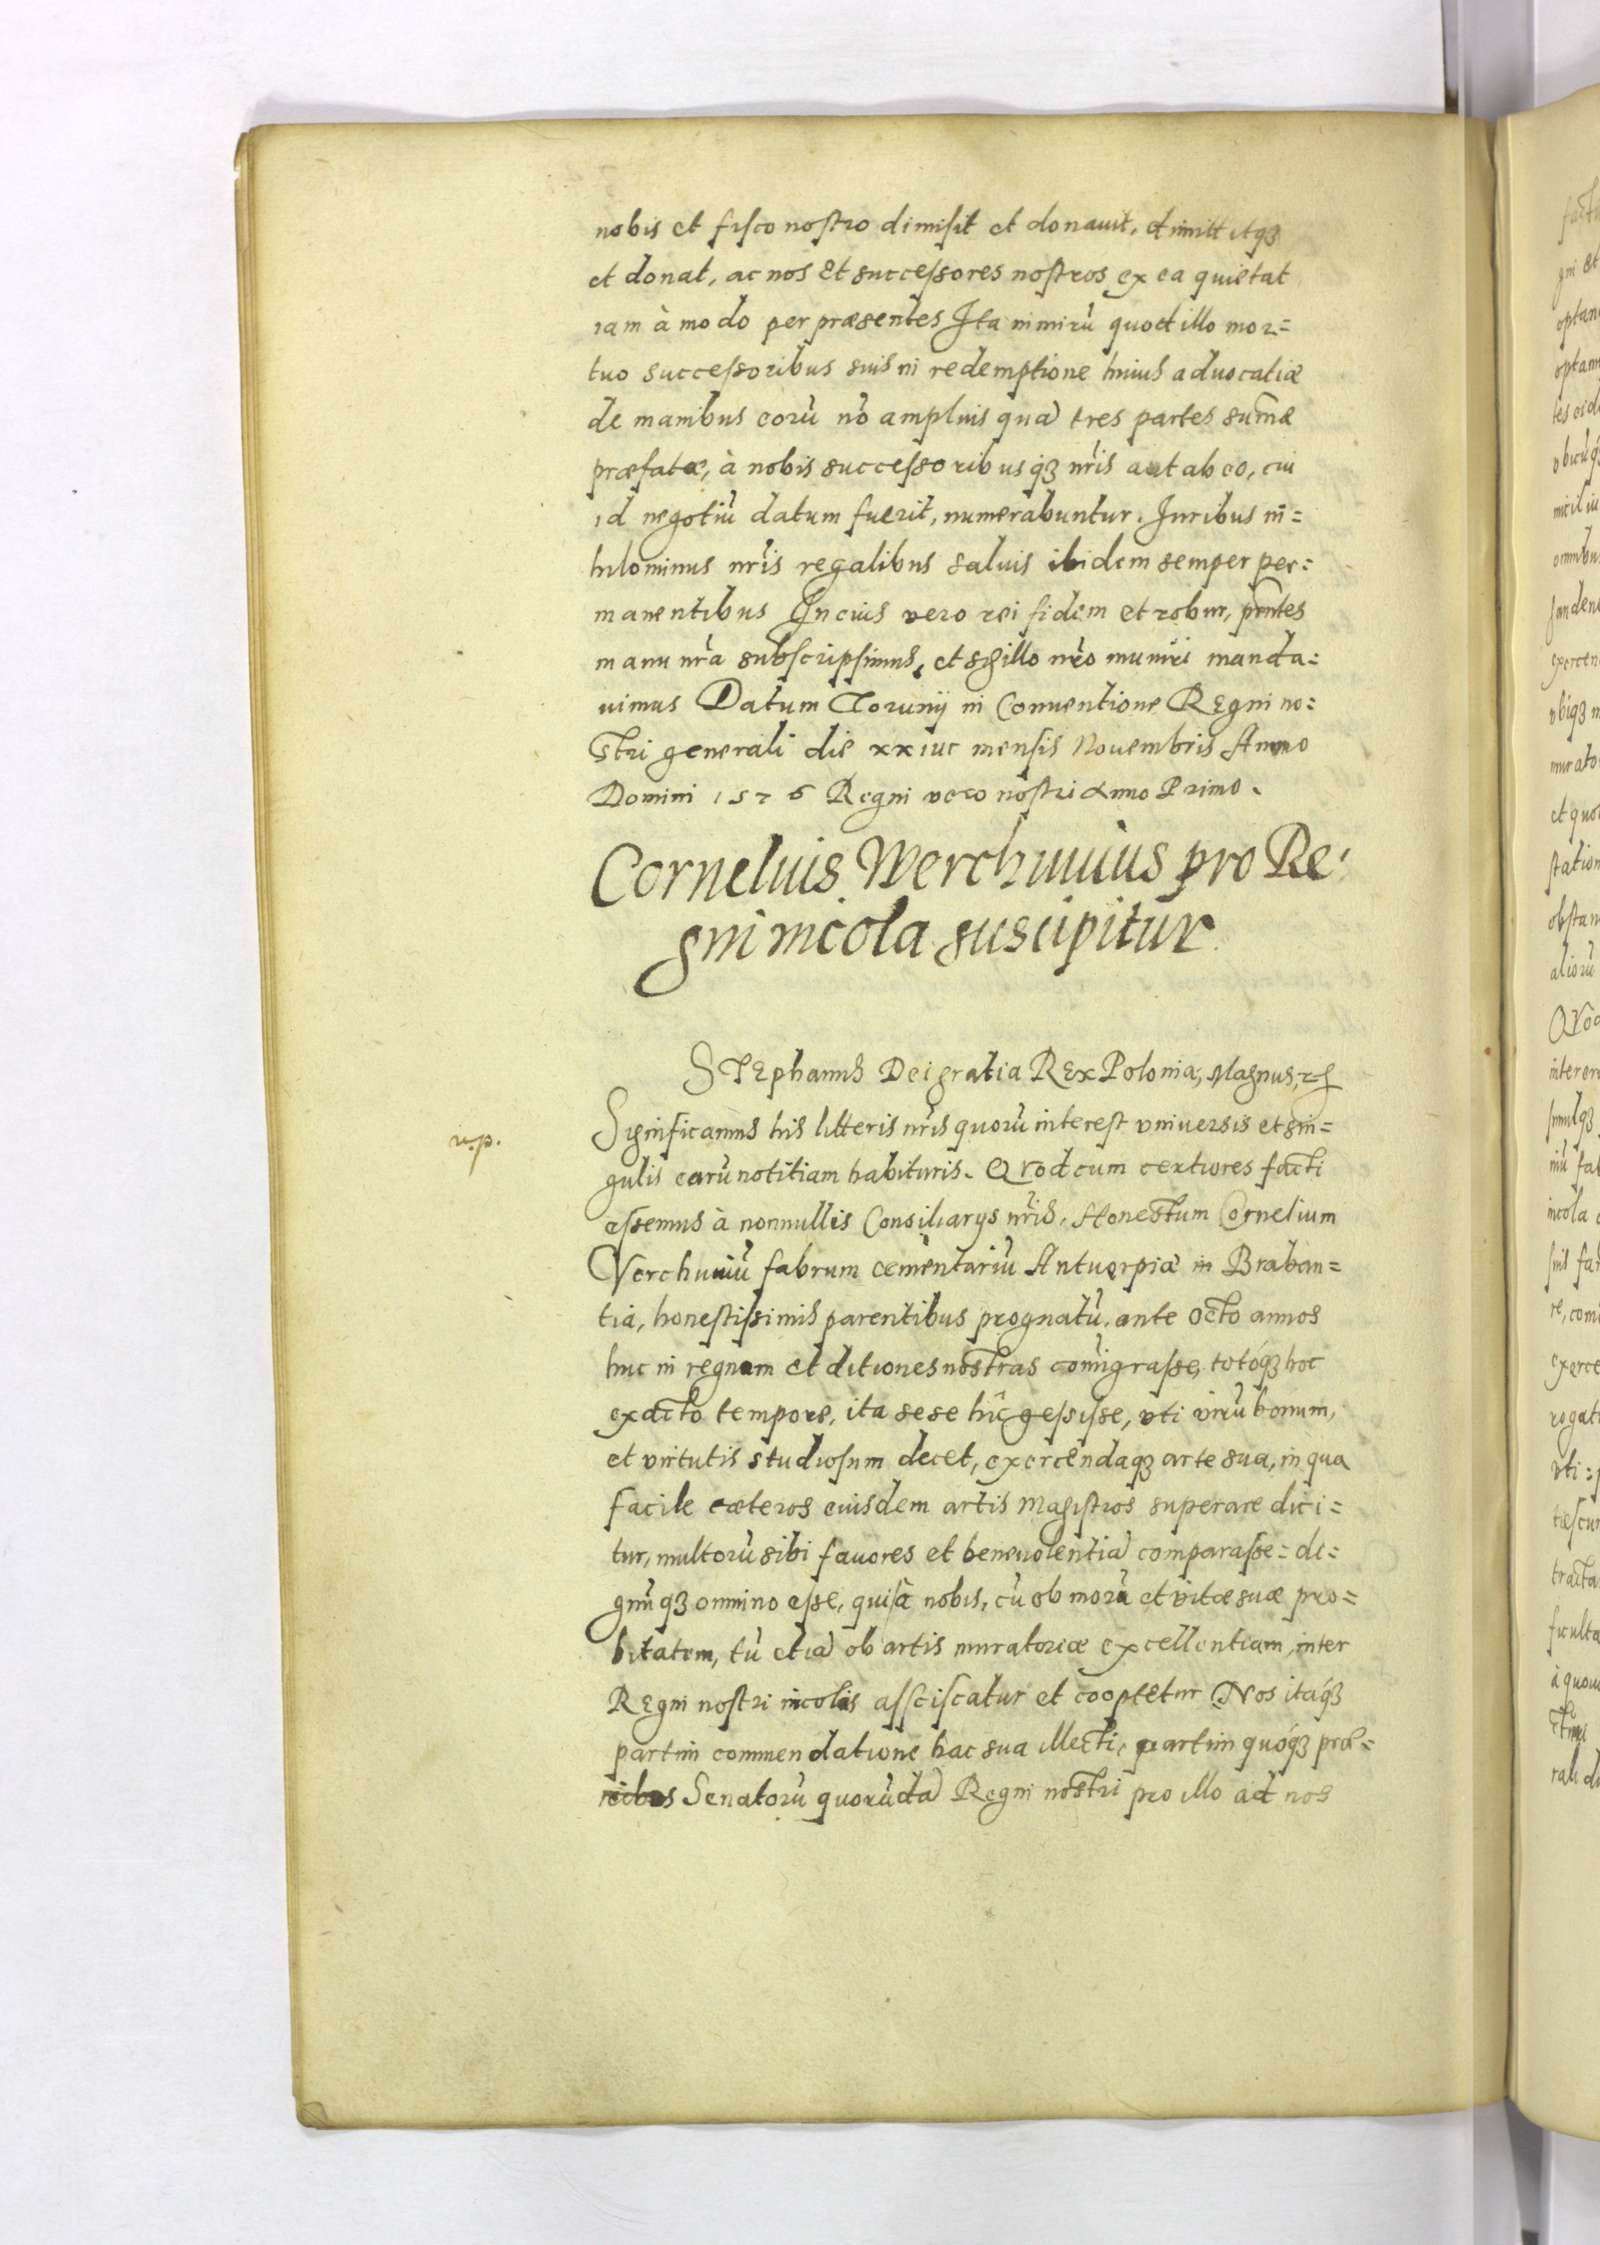 nobis et fisco nostro dimisit et donauit, dimittitqȝ
et donat, ac nos et successores nostros ex ea quietat
iam à modo per præsentes Ita nimirū quod illo mor=
tuo successoribus suis in redemptione huius aduocatiæ
de manibus eorū nō amplius quā tres partes sum̄æ
præfatæ, à nobis successoribusqȝ nr̄is aut ab eo, cui
id negotiū datum fuerit, numerabuntur. Juribus ni=
hilominus nr̄is regalibus saluis ibidem semper per=
manentibus In cuius vero rei fidem et robur, pn̄tes
manu nr̄a subscripsimus, et sigillo nr̄o muniri manda=
uimus Datum Torunij in Conuentione Regni no=
stri generali die xxiuc mensis Nouembris Anno
Domini 1576 Regni vero nostri Anno Primo.
Cornelius Werchuuius pro Re=
gni incola suscipitur
STEphanus Dei gratia REx Poloniæ, Magnus, etc
Significamus his litteris nr̄is quorū interest vniuersis et sin=
v.p.
gulis earū notitiam habituris. Qvod cum certiores facti
essemus à nonnullis Consiliarijs nr̄is, Honestum Cornelium
Verchuuiū fabrum cementariū Antuerpiæ in Braban=
tia, honestissimis parentibus prognatū, ante octo annos
huc in regnum et ditiones nostras com̄igrasse, totóqȝ hoc
exacto tempore, ita sese hîc gessisse, vti virū bonum,
et virtutis studiosum decet, exercendaqȝ arte sua, in qua
facile cæteros eiusdem artis magistros superare dici=
tur, multorū sibi fauores et beneuolentiā comparasse= di=
gnūqȝ omnino esse, qui à nobis, cū ob morū et vitæ suæ pro=
bitatem, tū etiā ob artis muratoriæ excellentiam, inter
Regni nostri incolas assciscatur et cooptetur Nos itaqȝ
partim commendatione hac sua illecti, partim quóqȝ præ=
cibus Senatorū quorūdā Regni nostri pro illo ad nos